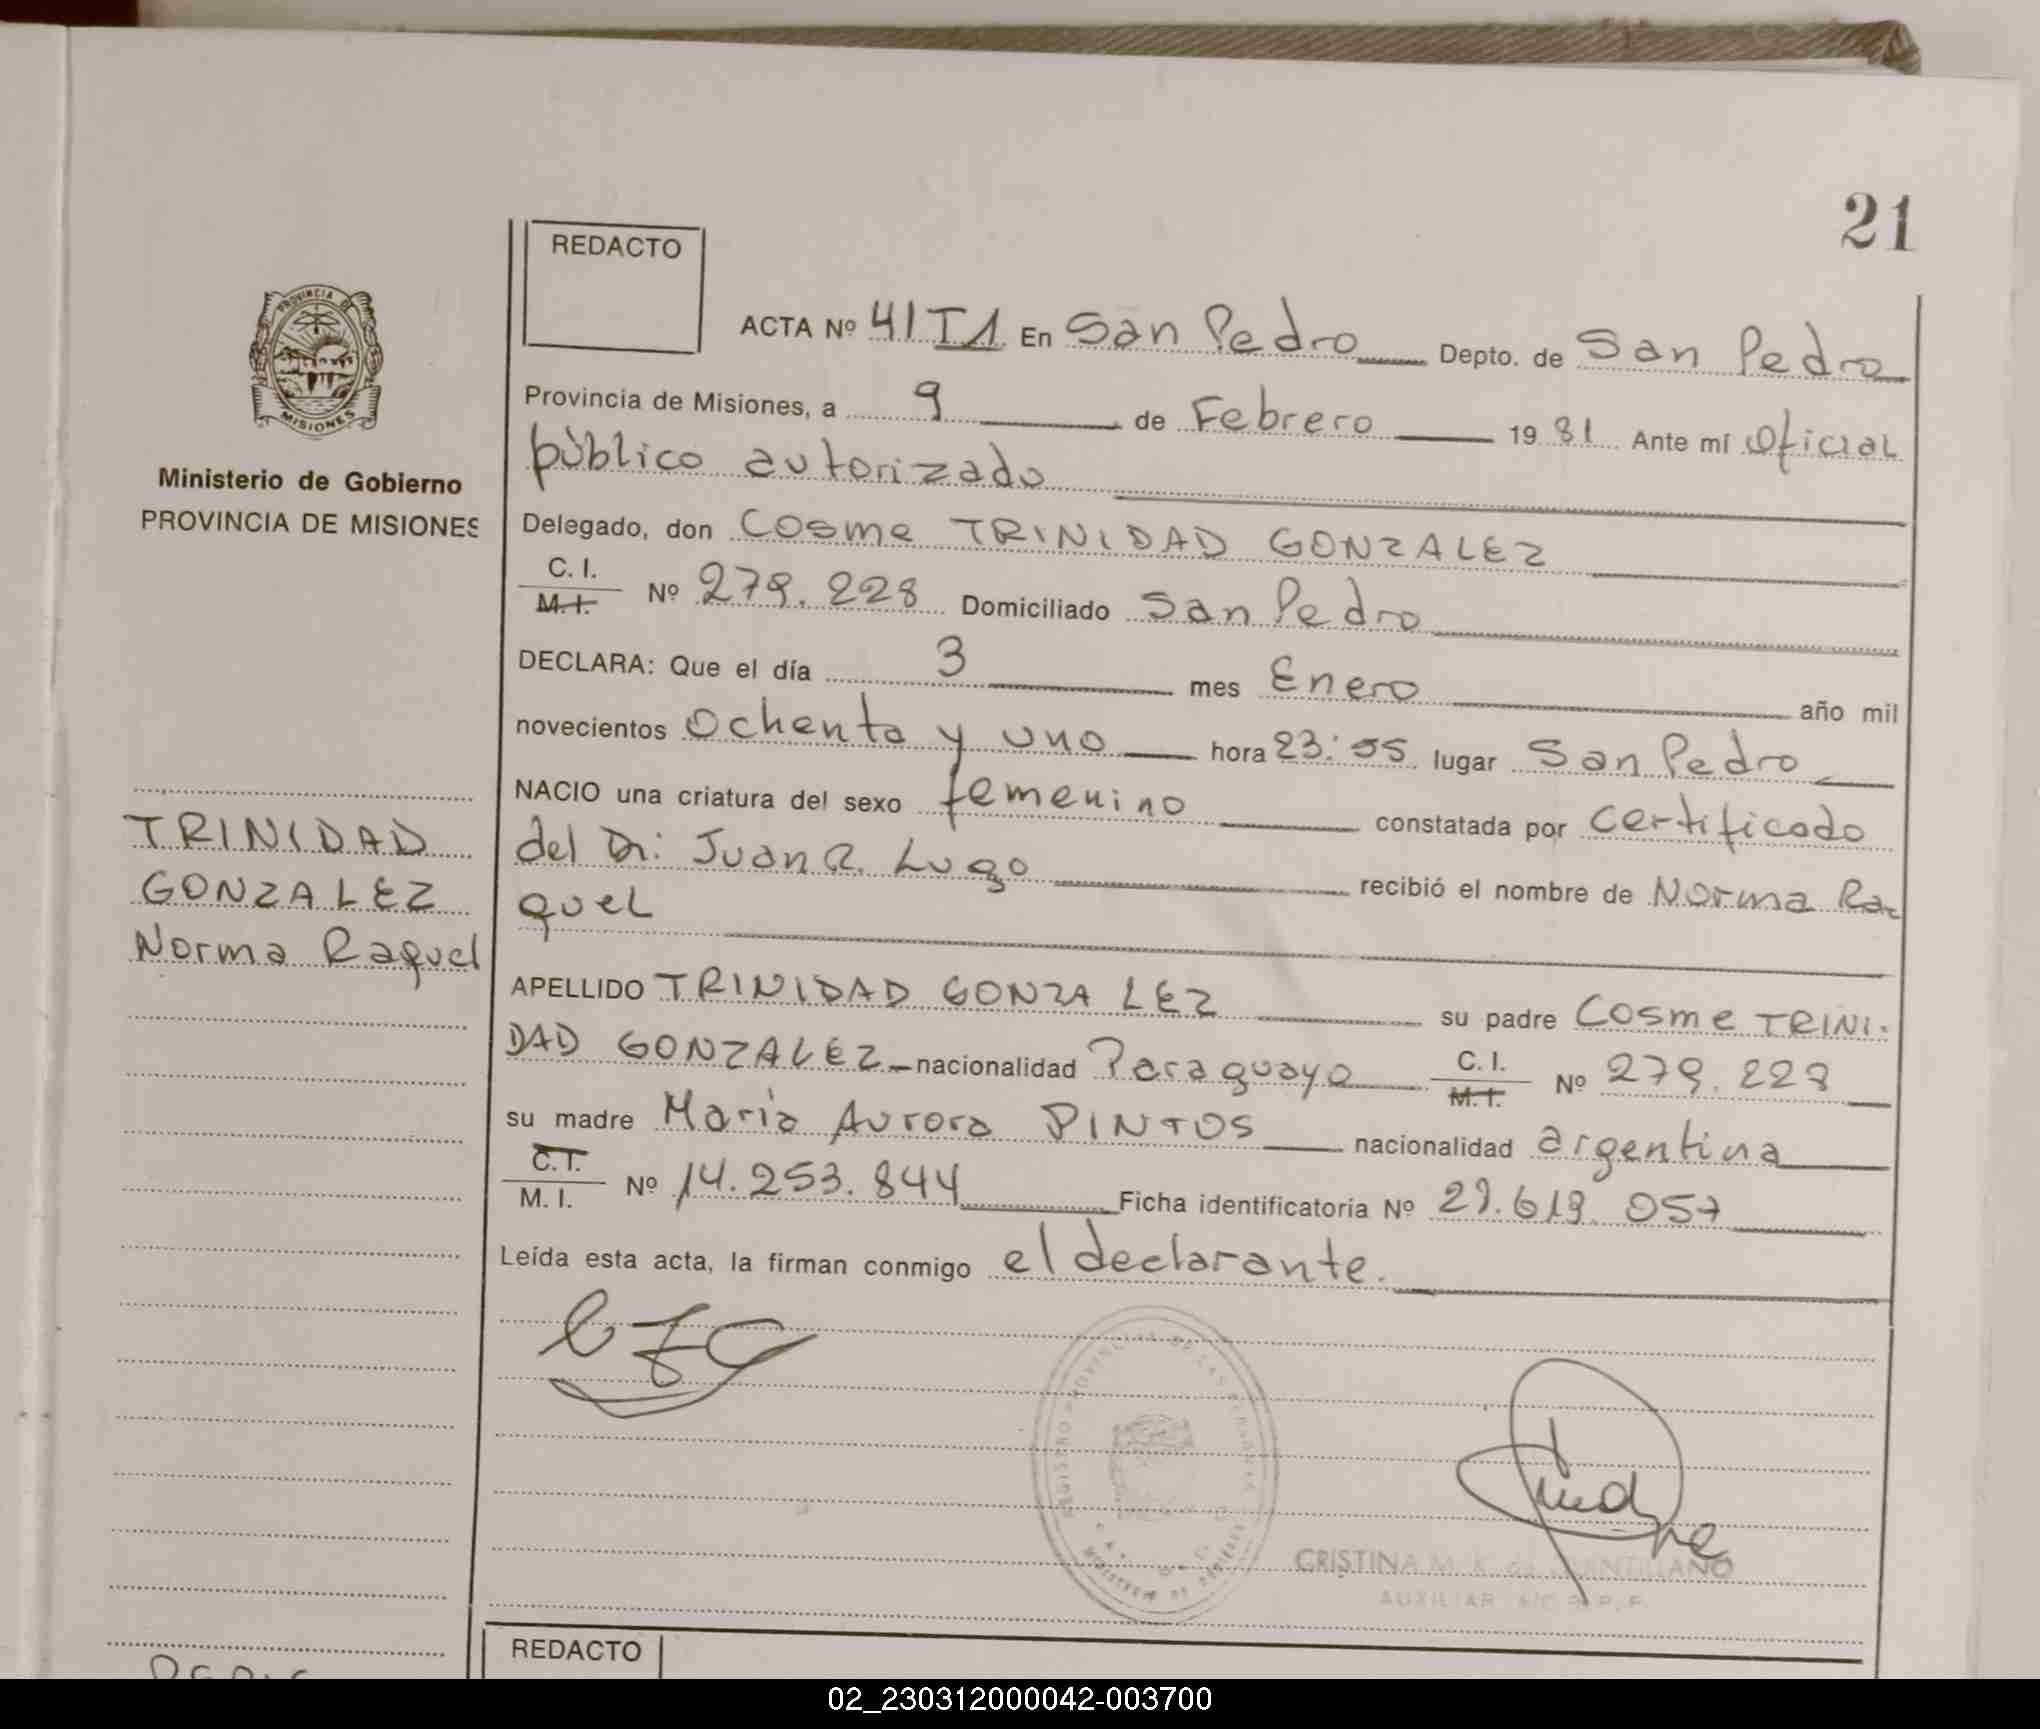 21
REDACTO
ACTA Nº 41 T1 En San Pedro Depto. de San Pedro
Provincia de Misiones, a 9 de Febrero 1981 Ante mí Oficial
público autorizado
Delegado, don Cosme TRINIDAD GONZALEZ
C. I.
M. I. Nº 279.228 Domiciliado San Pedro
DECLARA: Que el día 3 mes Enero año mil
novecientos ochenta y uno hora 23:55 lugar San Pedro
NACIO una criatura del sexo femenino constatada por certificado
del Dr: Juan R. Lugo recibió el nombre de Norma Ra-
quel
APELLIDO TRINIDAD GONZALEZ su padre Cosme TRINI-
DAD GONZALEZ nacionalidad Paraguaya C. I.
M. I. Nº 279.228
su madre María Aurora PINTOS nacionalidad argentina
C. I.
M. I. Nº 14.253.844 Ficha identificatoria Nº 29.619.057
Leída esta acta, la firman conmigo el declarante.
PROVINCIA DE
MISIONES
Ministerio de Gobierno
PROVINCIA DE MISIONES
TRINIDAD
GONZALEZ
Norma Raquel
CRISTINA M. K. de QUINTILLANO
AUXILIAR
REDACTO
02_230312000042-003700